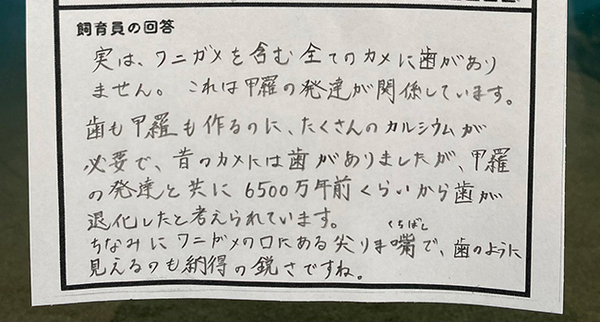 飼育員の回答
実は、ワニガメを含む全てのカメに歯があり
ません。これは甲羅の発達が関係しています。
歯も甲羅も作るのに、たくさんのカルシウムが
必要で、昔のカメには歯がありましたが、甲羅
の発達と共に6500万年前くらいから歯が
退化したと考えられています。
くちばし
ちなみにワニガメの口にある尖りは嘴で、歯のように
見えるのも納得の鋭さですね。